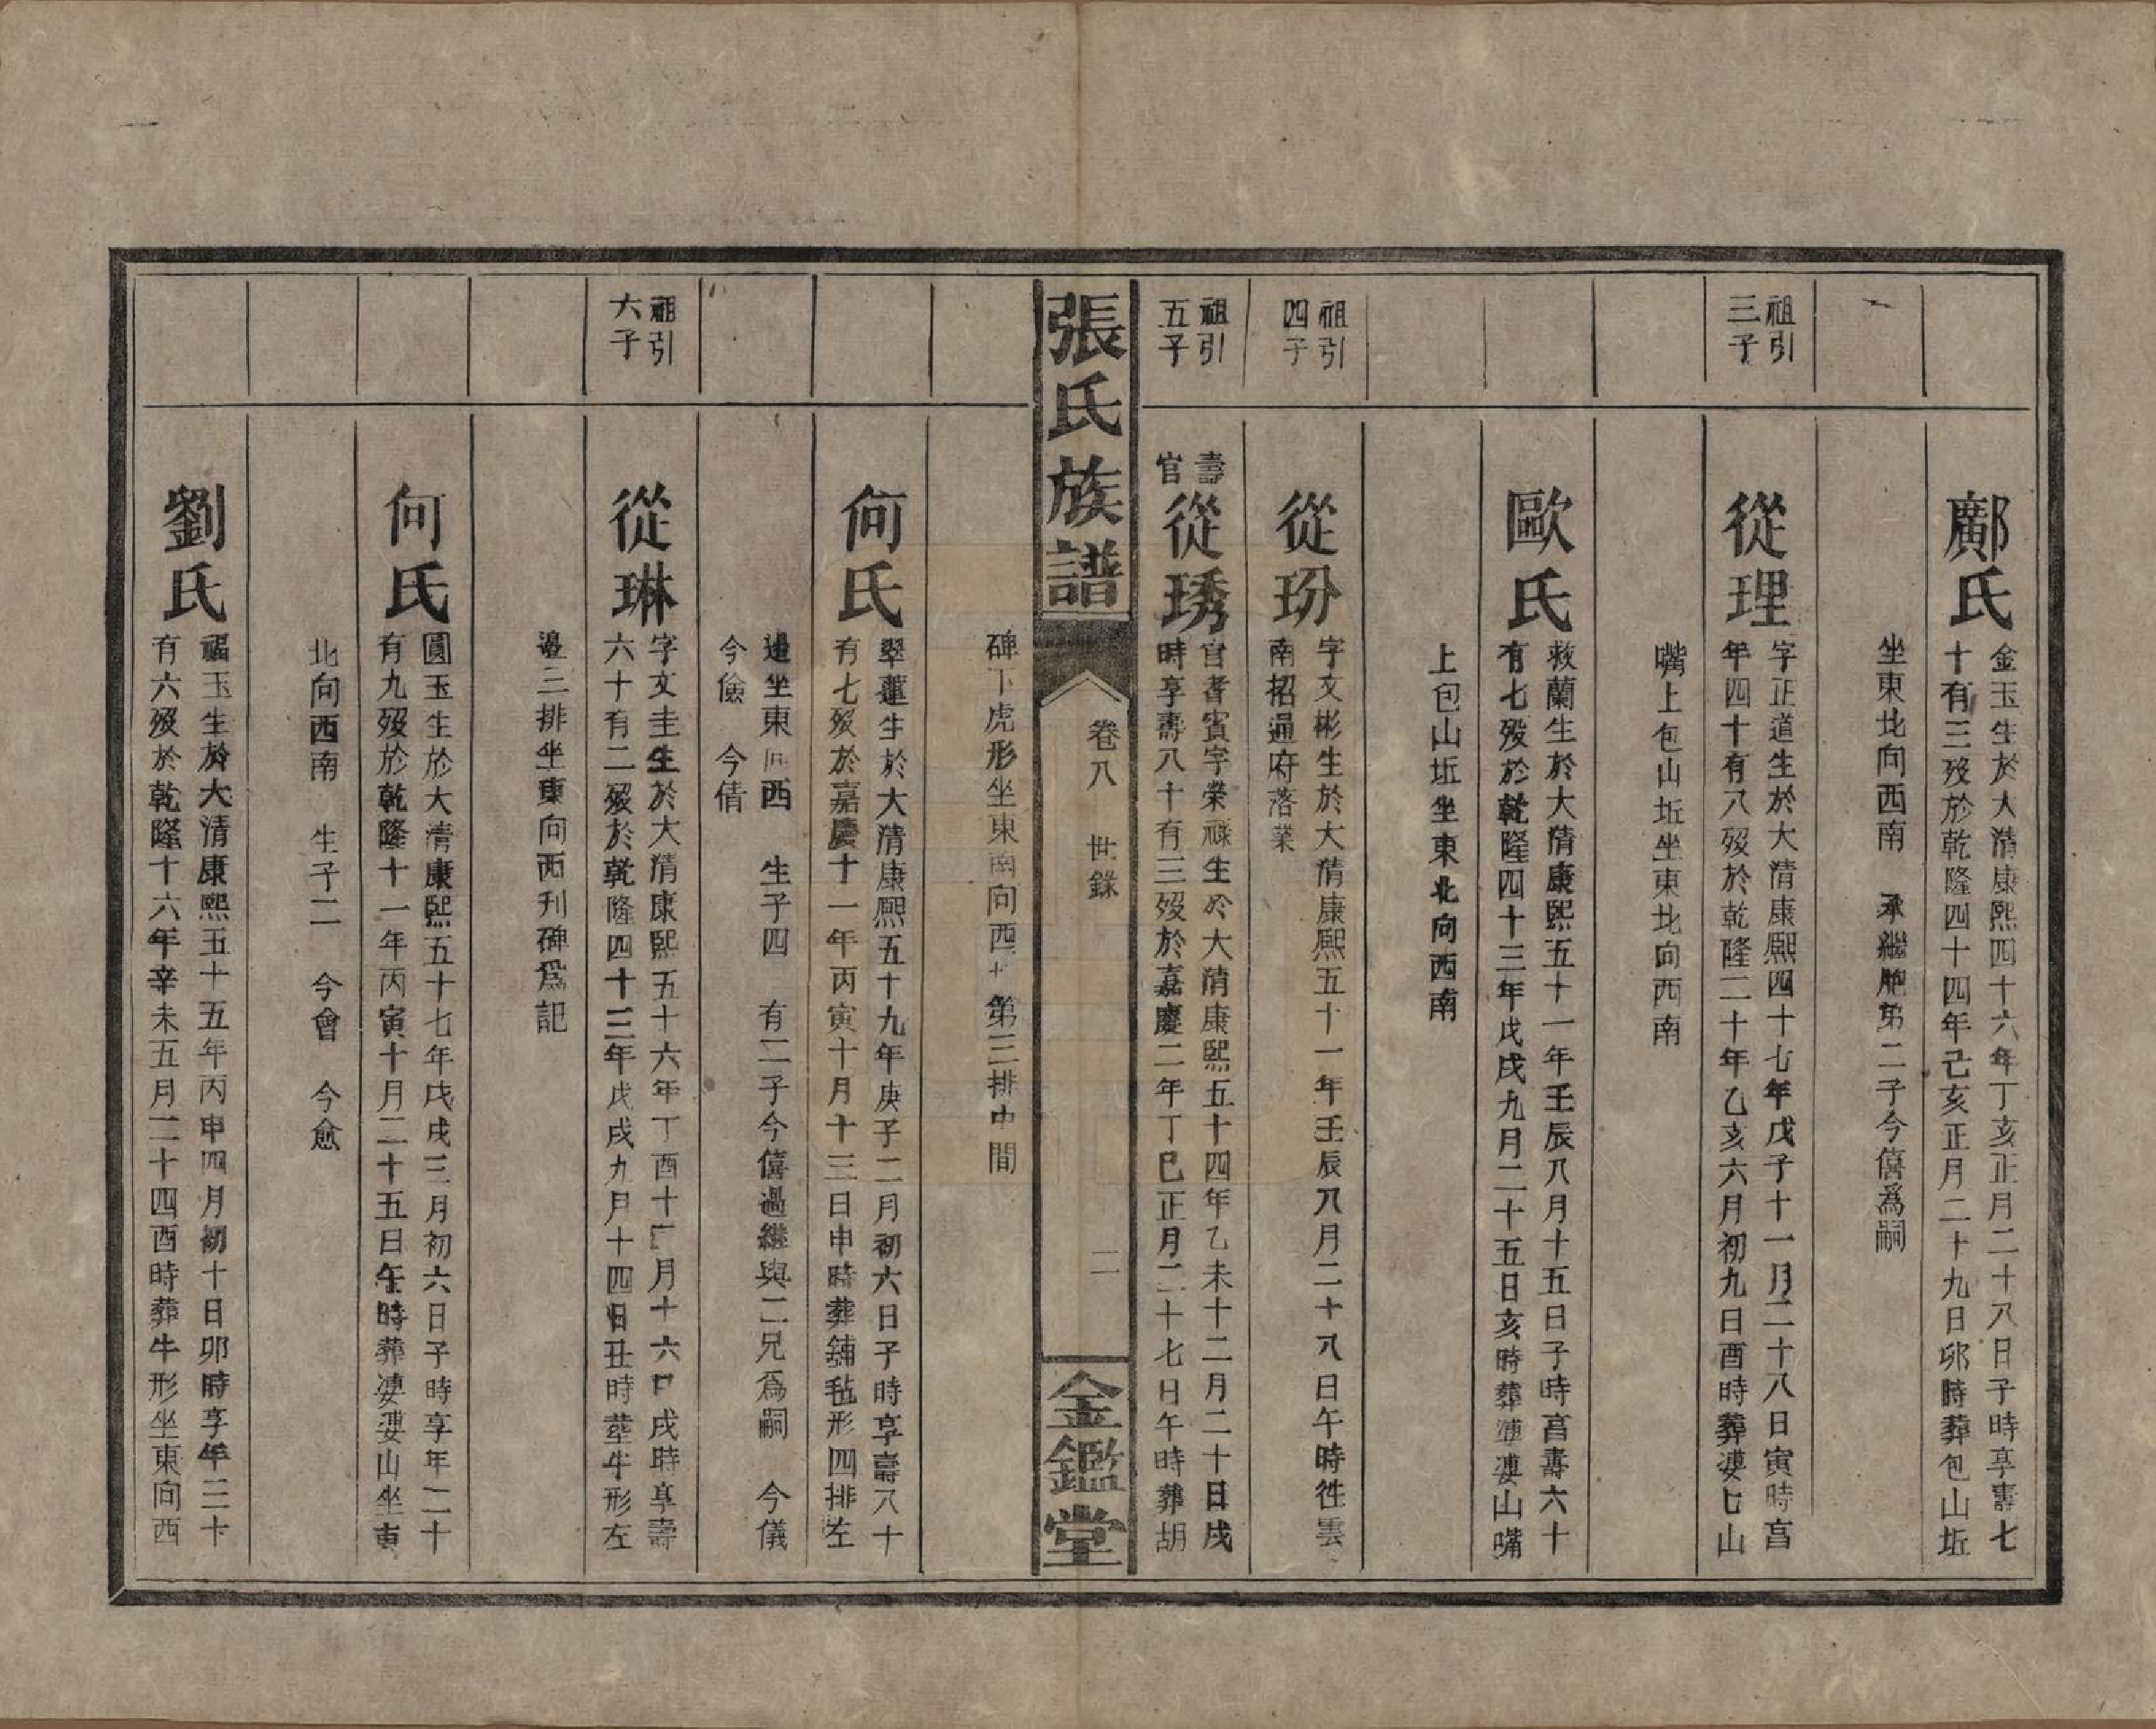 鄺氏
金玉生於大清康熙四十六年丁亥正月二十八日子時享壽七
十有三歿於乾隆四十四年己亥正月二十九日卯時葬包山坵
坐東北向西南　承繼胞弟二子今僖爲嗣
祖引
三子
從理
字正道生於大清康熙四十七年戊子十一月二十八日寅時亯
年四十有八歿於乾隆二十年乙亥六月初九日酉時葬漊七山
嘴上包山坵坐東北向西南
歐氏
救蘭生於大清康熙五十一年壬辰八月十五日子時亯壽六十
有七歿於乾隆四十三年戊戌九月二十五日亥時葬漊漊山嘴
上包山坵坐東北向西南
祖引
四子
從玢
字文彬生於大清康熙五十一年壬辰八月二十八日午時徃雲
南招通府落業
祖引
五子
壽
官
從琇
官耆賓字榮祿生於大清康熙五十四年乙未十二月二十日戌
時享壽八十有三歿於嘉慶二年丁巳正月二十七日午時葬胡
張氏族譜
卷八　世錄
二
金鑑堂
碑下虎形坐東南向西北第三排中間
何氏
翠蓮生於大清康熙五十九年庚子二月初六日子時享壽八十
有七歿於嘉慶十一年丙寅十月十三日申時葬鋪毡形四排左
邊坐東向西　生子四　有二子今僖過継與二兄爲嗣　今儀
今儉　今倩
祖引
六子
從琳
字文圭生於大清康熙五十六年丁酉十二月十六日戌時享壽
六十有二歿於乾隆四十三年戊戌九月十四日丑時塟牛形左
邊三排坐東向西刋碑爲記
何氏
圓玉生於大清康熙五十七年戊戌三月初六日子時享年二十
有九歿於乾隆十一年丙寅十月二十五日午時葬漊漊山坐東
北向西南　生子二　今會　今愈
劉氏
福玉生於大清康熙五十五年丙申四月初十日卯時享年三十
有六歿於乾隆十六年辛未五月二十四酉時葬牛形坐東向西